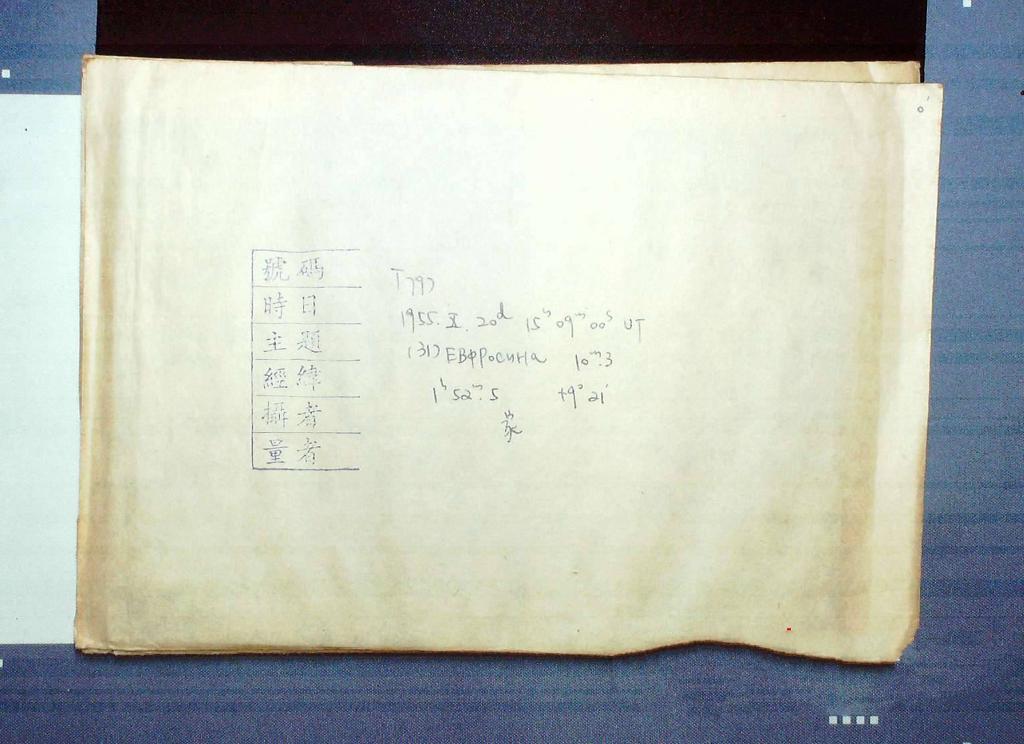 o'
號碼 T797
時日 1955. X. 20ᵈ 15ʰ 09ᵐ 00ˢ UT
主題 (31) ЕВФРОСИНА 10ᵐ.3
經緯 1ʰ 52ᵐ.5 +9° 21'
攝者
量者